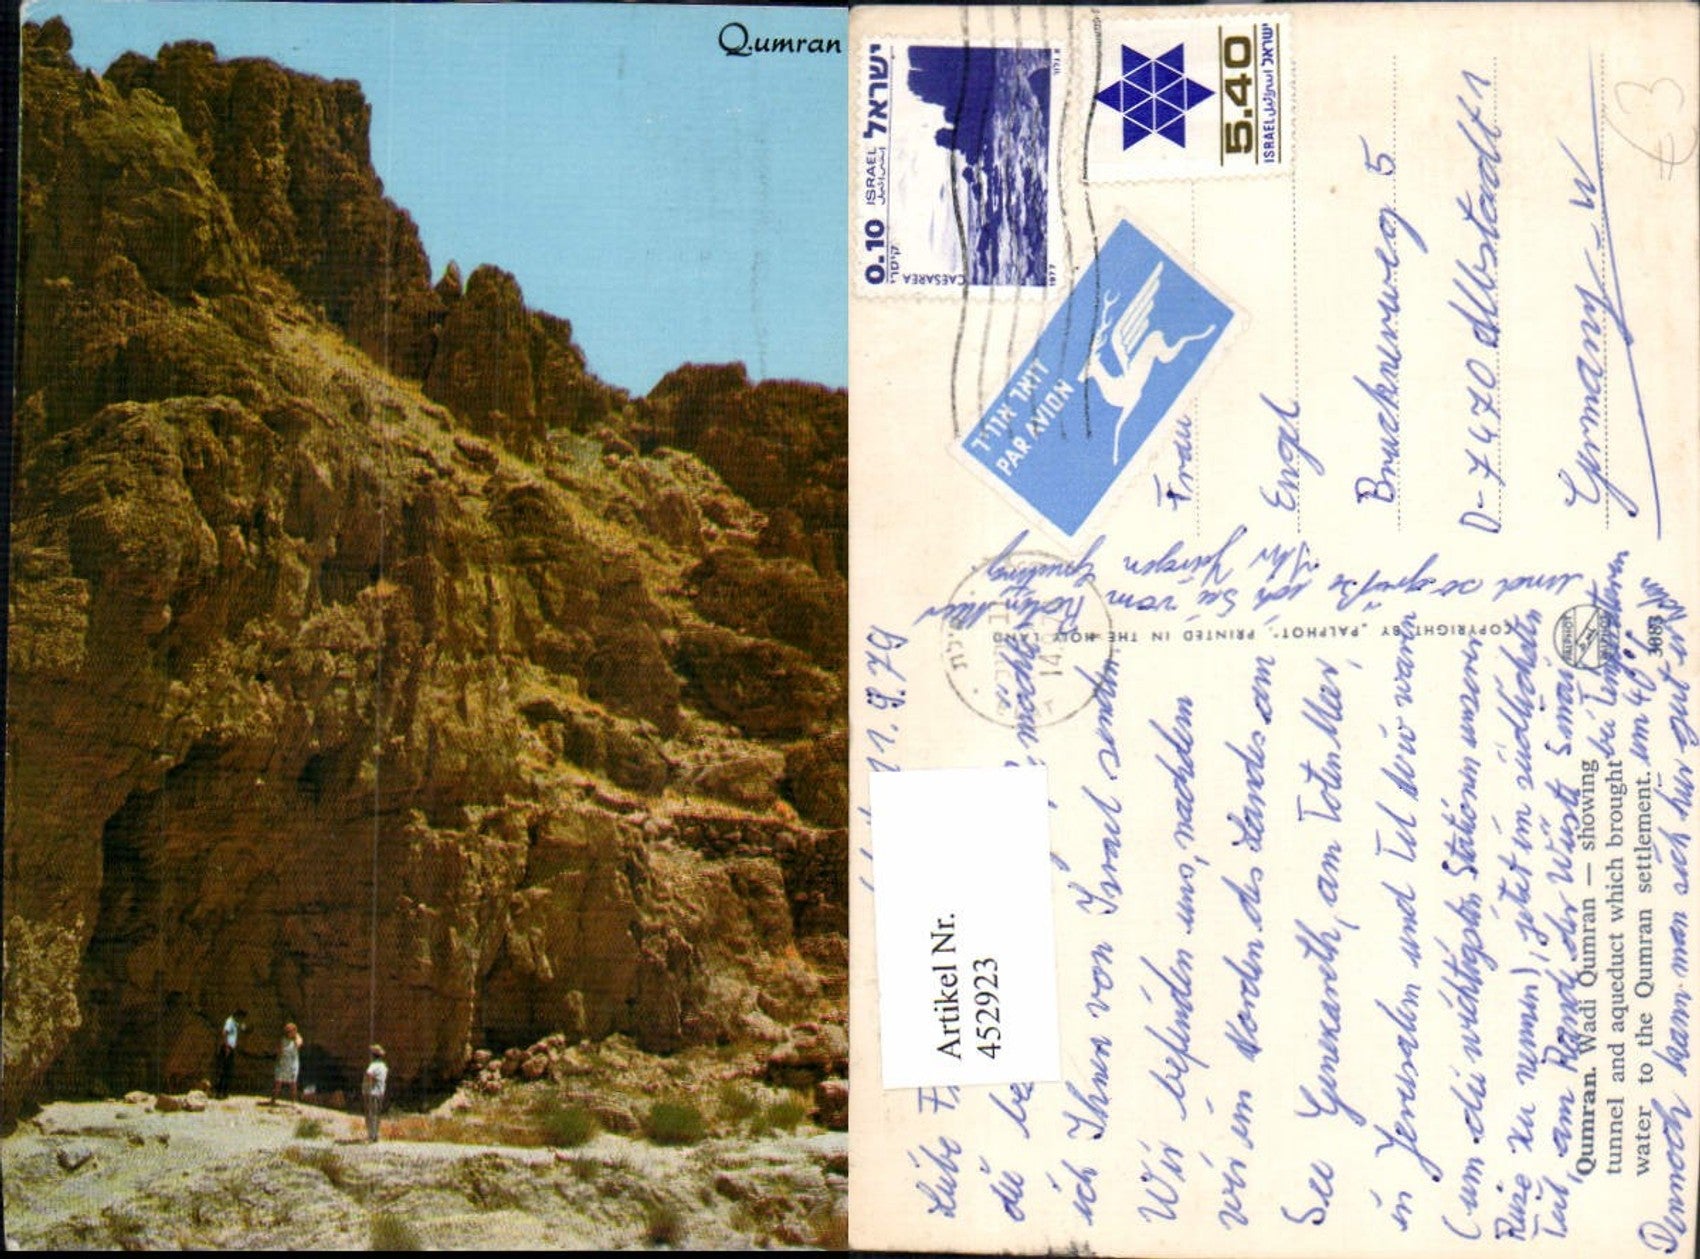 Qumran
ישראל
ISRAEL
0.10
קיסרי
CAESAREA
1977
5.40
ISRAEL ישראל
דואר אויר
PAR AVION
€ 3
Frau
Engel
Brucknerweg 5
D-7470 Albstadt 1
Germany-W
COPYRIGHT BY "PALPHOT". PRINTED IN THE HOLY LAND
PALPHOT
3083
אילת
14
Artikel Nr.
452923
11.9.79
Liebe
die
ich Ihnen von Israel senden
Wir befinden uns, nachdem
wir im Norden des Landes am
See Genezareth, am Toten Meer,
in Jerusalem und Tel Aviv waren
(um die wichtigsten Stationen unserer
Reise zu nennen), jetzt im südlichsten
Teil am Rand der Wüste Sinai
bei Temperaturen
um 40°
Dennoch kann man sich hier gut
und so grüße
ich Sie vom Roten Meer
Ihr Jürgen
"Qumran. Wadi Qumran — showing
tunnel and aqueduct which brought
water to the Qumran settlement.